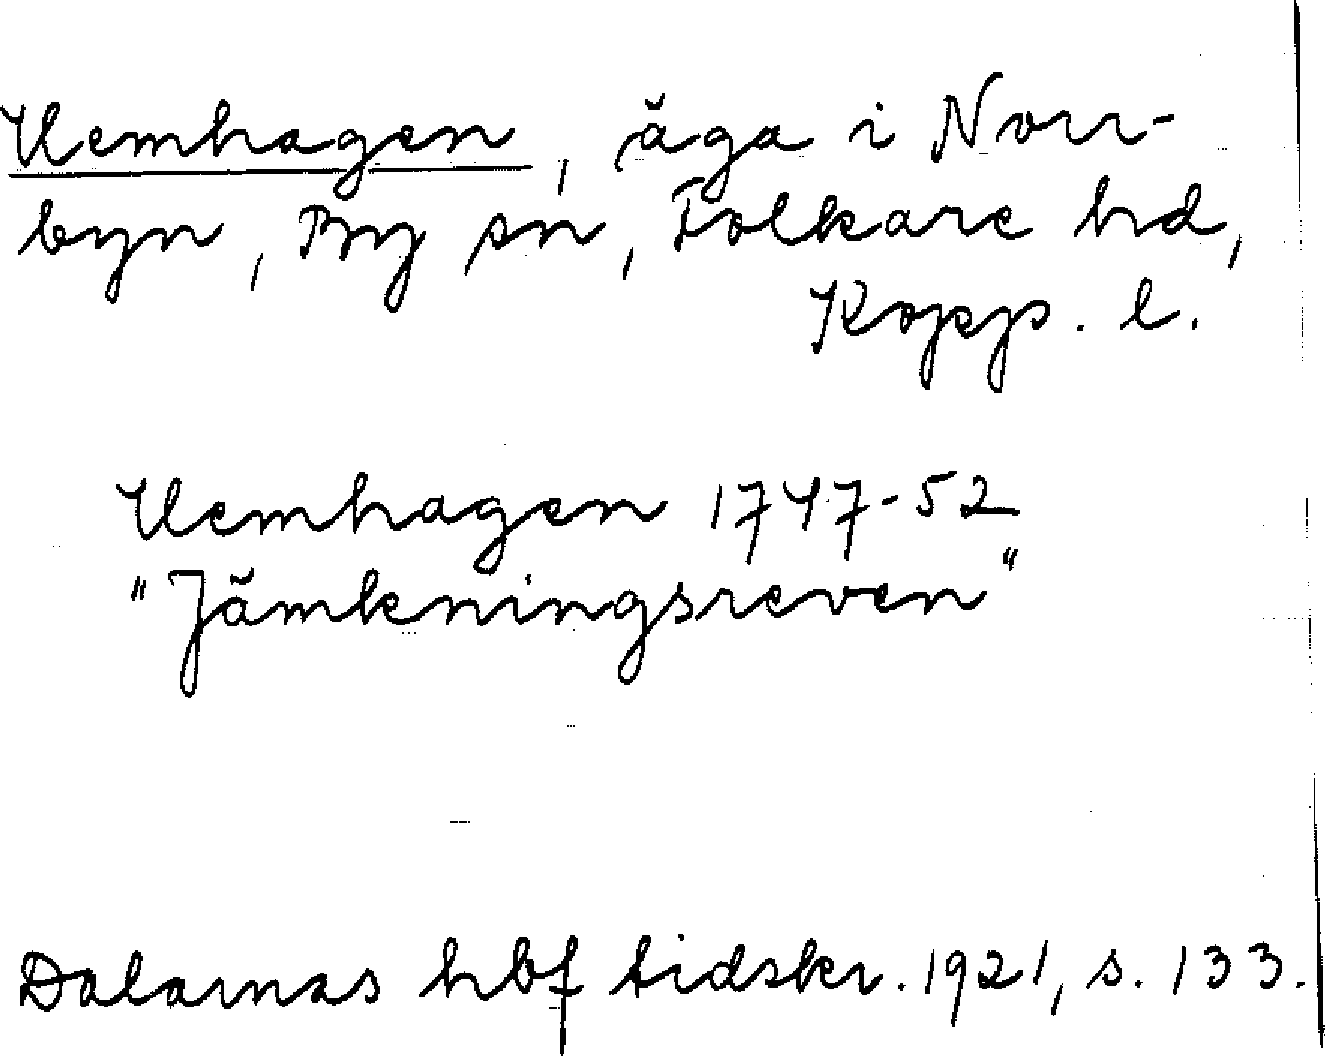 Uemhagen, äga i Norr-
byn, By sn, Folkare hd,
Kopp. l.
Uemhagen 1747-52
"Jämkningsreven"
Dalarnas hbf tidskr. 1921, s. 133.